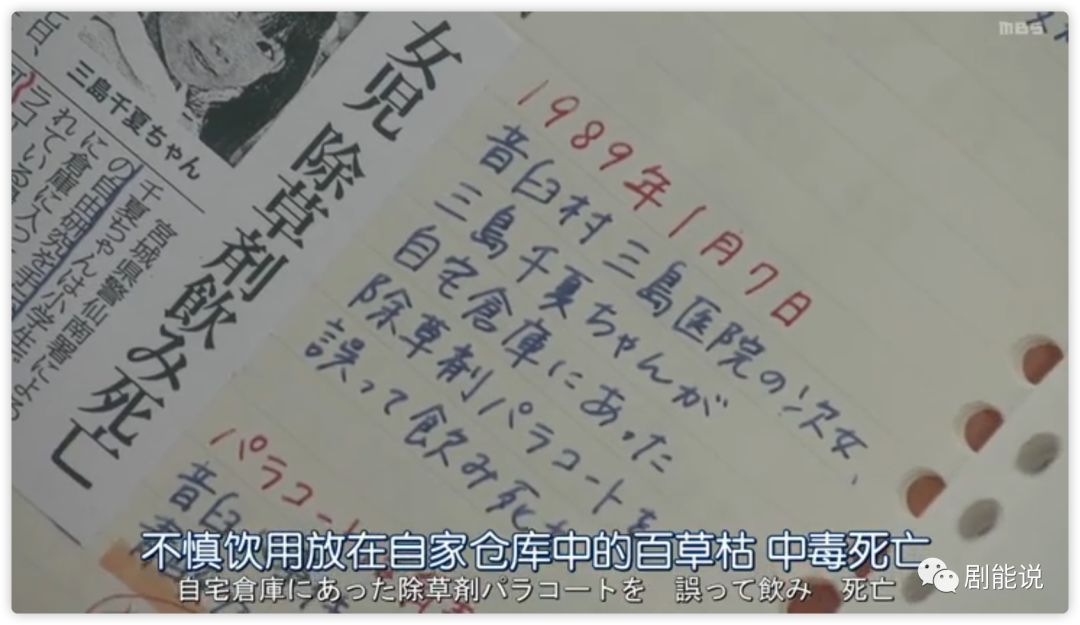 MBS
女児 除草剤飲み死亡
三島千夏ちゃん
宮城県警仙南署によ
千夏ちゃんは小学生
の自由研究を
に倉庫に入っ
れている
1989年1月7日
音臼村 三島医院の次女、
三島千夏ちゃんが
自宅倉庫にあった
除草剤パラコートを
誤って飲み死
パラコート
音臼
不慎饮用放在自家仓库中的百草枯 中毒死亡
自宅倉庫にあった除草剤パラコートを 誤って飲み 死亡
剧能说